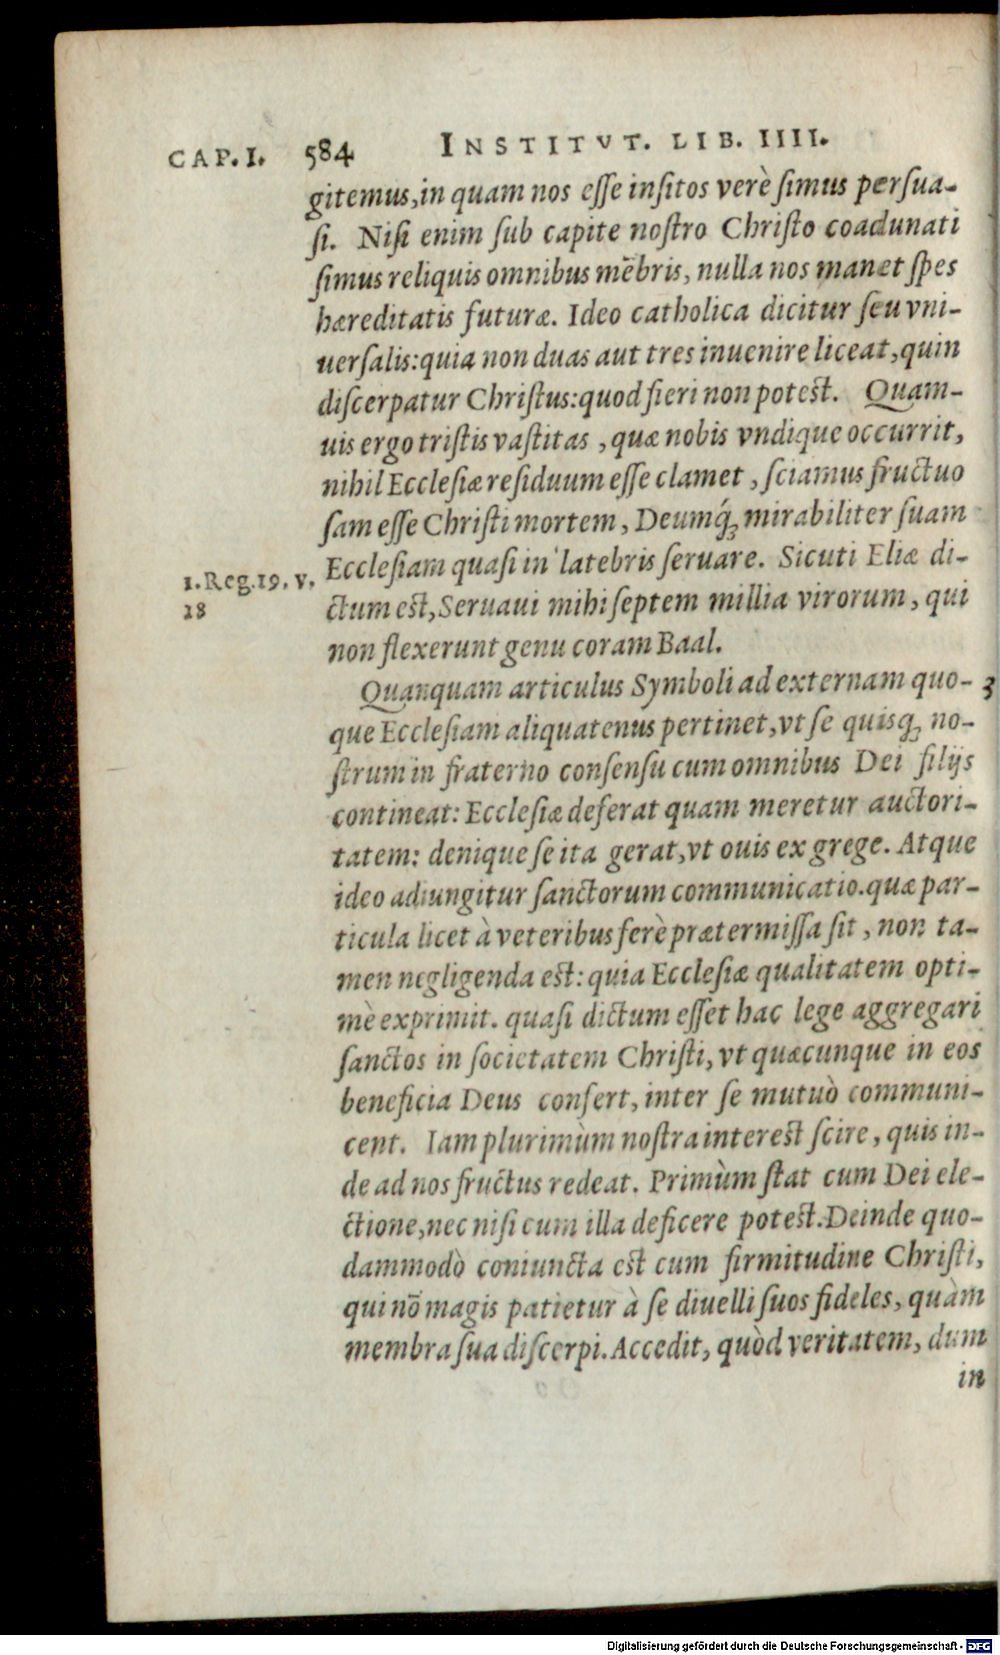 CAP. I. 584 INSTITVT. LIB. IIII.
gitemus, in quam nos esse insitos verè simus persua-
si. Nisi enim sub capite nostro Christo coadunati
simus reliquis omnibus mẽbris, nulla nos manet spes
hæreditatis futuræ. Ideo catholica dicitur seu vni-
uersalis: quia non duas aut tres inuenire liceat, quin
discerpatur Christus: quod fieri non potest. Quam-
uis ergo tristis vastitas, quæ nobis vndique occurrit,
nihil Ecclesiæ residuum esse clamet, sciamus fructuo
sam esse Christi mortem, Deumq́ꝫ mirabiliter suam
Ecclesiam quasi in latebris seruare. Sicuti Eliæ di-
1. Reg. 19. v.
18
ctum est, Seruaui mihi septem millia virorum, qui
non flexerunt genu coram Baal.
Quanquam articulus Symboli ad externam quo- 3
que Ecclesiam aliquatenus pertinet, vt se quisqꝫ no-
strum in fraterno consensu cum omnibus Dei filijs
contineat: Ecclesiæ deferat quam meretur auctori-
tatem: denique se ita gerat, vt ouis ex grege. Atque
ideo adiungitur sanctorum communicatio. quæ par-
ticula licet à veteribus ferè prætermissa sit, non ta-
men negligenda est: quia Ecclesiæ qualitatem opti-
mè exprimit. quasi dictum esset hac lege aggregari
sanctos in societatem Christi, vt quæcunque in eos
beneficia Deus confert, inter se mutuò communi-
cent. Iam plurimùm nostra interest scire, quis in-
de ad nos fructus redeat. Primùm stat cum Dei ele-
ctione, nec nisi cum illa deficere potest. Deinde quo-
dammodò coniuncta est cum firmitudine Christi,
qui nõ magis patietur à se diuelli suos fideles, quàm
membra sua discerpi. Accedit, quòd veritatem, dum
in
Digitalisierung gefördert durch die Deutsche Forschungsgemeinschaft - DFG